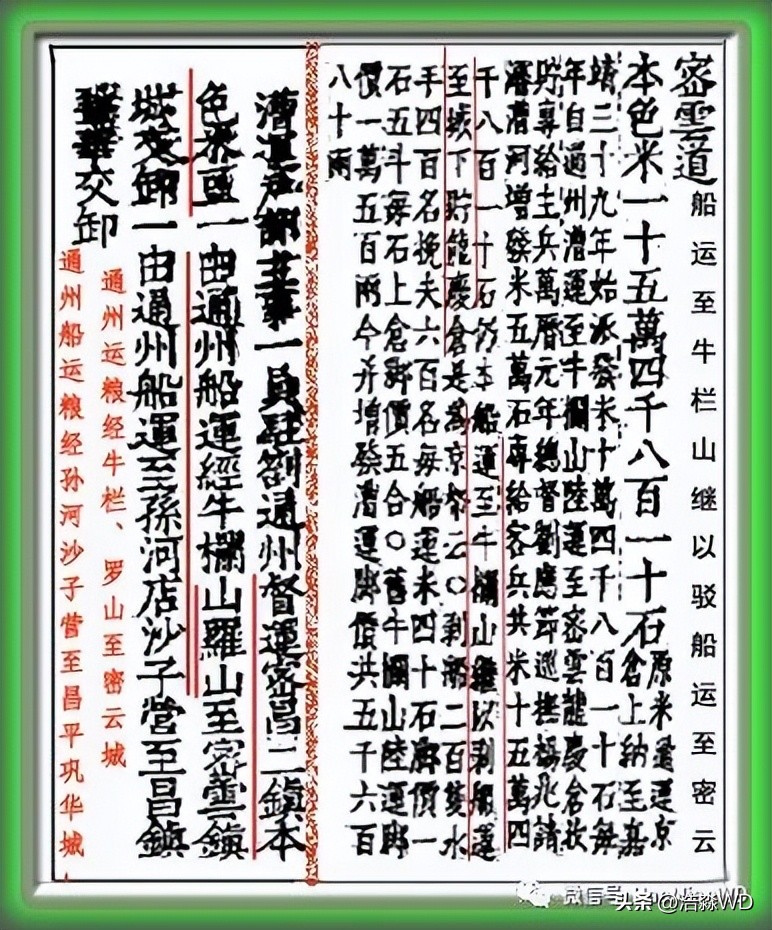 密雲道
船运至牛栏山继以驳船运至密云
本色米一十五萬四千八百一十石 原米運京
倉上納至嘉
靖三十九年始派發米十萬四千八百一十石每
年自通州漕運至牛欄山陸運至密雲龍慶倉收
貯專給主兵萬曆元年總督劉應節巡撫楊兆請
濬漕河增發米五萬石專給客兵共米十五萬四
千八百一十石仍本船運至牛欄山繼以剥船運
至鎮下貯龍慶倉是為京云○剥船二百隻水
手四百名挽夫六百名每船運米四十石脚價一
石五斗每石上倉脚價五合○舊牛欄山陸運脚
價一萬五百兩今并增發漕運脚價共五千六百
八十兩
漕運戶部主事一員駐劄通州督運密昌二鎮本
色米豆一由通州船運經牛欄山羅山至密雲鎮
城交卸一由通州船運至孫河店沙子營至昌鎮
交卸
通州运粮经牛栏、罗山至密云城
通州船运粮经孙河沙子营至昌平巩华城
微信号
头条 @浩淼WD